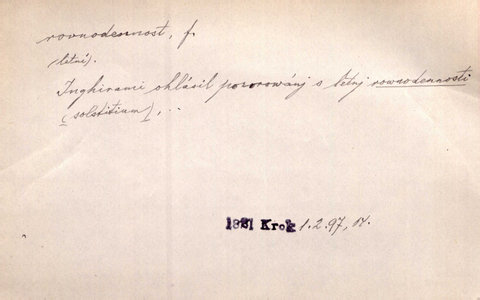 rovnodennost, f.
letní).
Inghirami ohlásil pozorowánj s letnj rownodennosti
(solstitium), ..
1821 Krok 1.2.97,